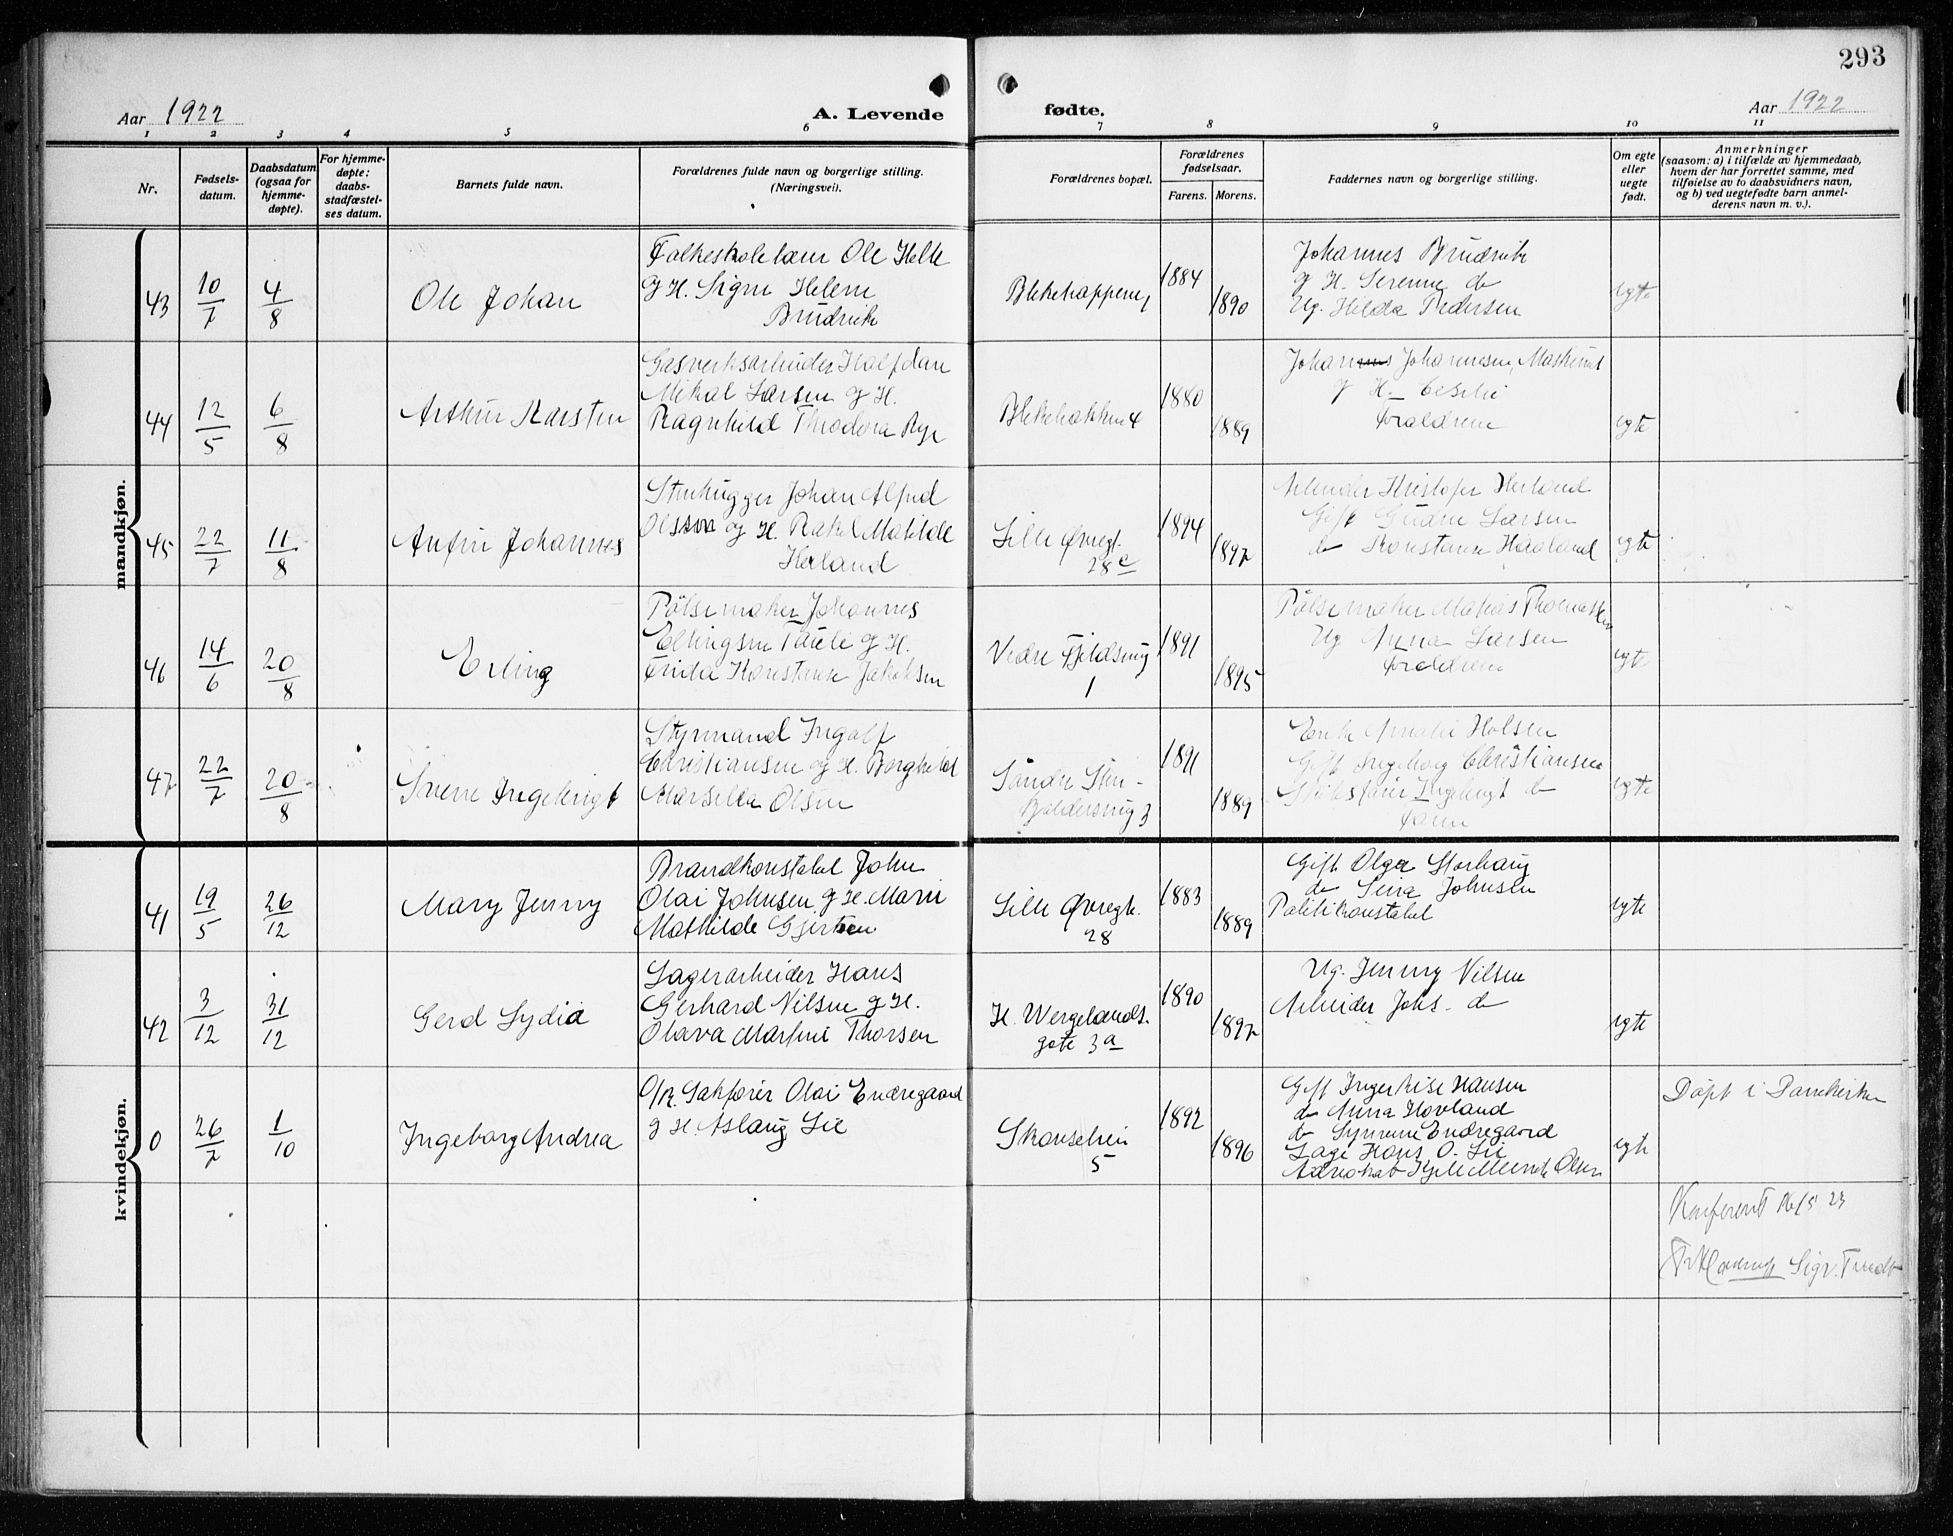 293
Aar 1922
A. Levende
fødte.
Aar 1922
1 2 3 4 5 6 7 8 9 10 11
Nr.
Fødsels-
datum.
Daabsdatum
(ogsaa for
hjemme-
døpte).
For hjemme-
døpte:
daabs-
stadfæstel-
ses datum.
Barnets fulde navn.
Forældrenes fulde navn og borgerlige stilling.
(Næringsvei).
Forældrenes bopæl.
Forældrenes
fødselsaar.
Farens. Morens.
Faddernes navn og borgerlige stilling.
Om egte
eller
uegte
født.
Anmerkninger
(saasom: a) i tilfælde av hjemmedaab,
hvem der har forrettet samme, med
tilføielse av to daabsvidners navn,
og b) ved uegtefødte barn anmel-
derens navn m. v.).
mandkjøn.
43
10/7
4/8
Ole Johan
Folkeskolelærer Ole Helle
og H. Signe Helene
Brudvik
1884
1890
Johannes Brudvik
og H. Serenne do
Ug. Hilda Pedersen
egte
44
12/5
6/8
Arthur Karsten
Gasverksarbeider Halfdan
Mikal Larsen og H.
Ragnhild Theodora Rye
Blekebakken 4
1880
1889
Johannes Johannesen, Maskinist
og H. Cesilie
Forældrene
egte
45
22/7
11/8
Anfin Johannes
Stenhugger Johan Alfred
Olsson og H. Rakel Matilde
Haland
Lille Øvregt.
28 c
1894
1897
Arbeider Kristofer Herland
Gift Gudrun Larsen
do Konstanse Haaland
egte
46
14/6
20/8
Erling
Pølsemaker Johannes
Ellingsen Taule og H.
Frida Konstanse Jakobsen
Vedre Fjeldsmug
1
1891
1895
Pølsemaker Matias Thomassen
Ug Anna Larsen
Forældrene
egte
47
22/7
20/8
Sverre Ingebrigt
Styrmand Ingolf
Christiansen og H. Borghild
Marsella Olsen
Søndre Sten-
kjeldersmug 3
1891
1889
Enke Amalie Holsen
Gift Ingeborg Christiansen
Skibsfører Ingebrigt do
Faren
egte
kvindekjøn.
41
19/5
26/12
Mary Jenny
Brandkonstabel John
Olai Johnsen og H. Marie
Mathilde Gjertsen
Lille Øvregt.
28
1883
1889
Gift Olga Storhaug
do Sina Johnsen
Politikonstabel
egte
42
3/12
31/12
Gerd Lydia
Lagerarbeider Hans
Gerhard Nilsen og H.
Olava Martine Thorsen
H. Wergelands.
gate 3a
1890
1897
Ug. Jenny Nilsen
Arbeider Johs. do
egte
0
26/7
1/10
Ingeborg Andrea
O/R. Sakfører Olai Endregaard
og H. Aslaug Lie
Skanselien
5
1892
1896
Gift Ingerlise Hansen
do Anna Hovland
do Synneve Endregaard
Læge Hans O. Lie
egte
Døpt i Domkirken
Konferert 16/5 23
Sigv. Tundt